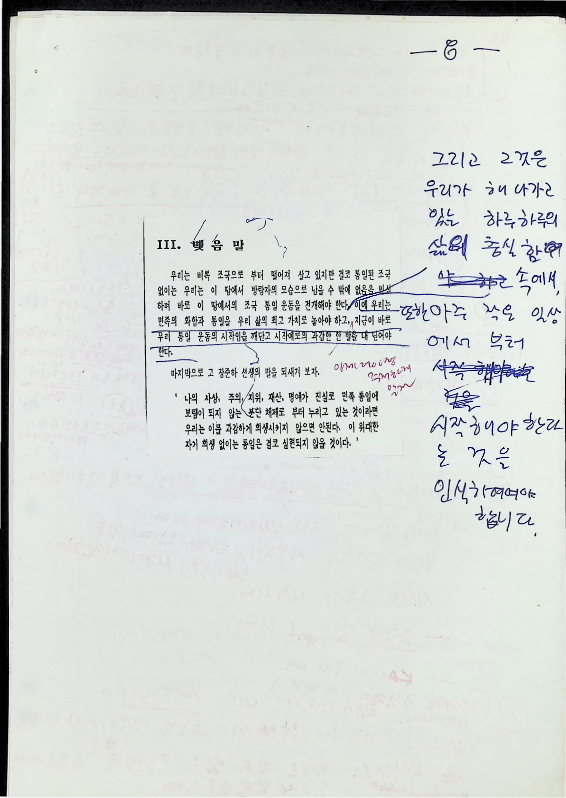 III. 맺 음 말
우리는 비록 조국으로 부터 떨어져 살고 있지만 결코 통일된 조국
없이는 우리는 이 땅에서 방랑자의 모습으로 남을 수 밖에 없음을 인식
하며 바로 이 땅에서의 조국 통일 운동을 전개해야 한다. 이에 우리는
민족의 화합과 통일을 우리 삶의 최고 가치로 놓아야 하고, 지금이 바로
우리 통일 운동의 시작임을 깨닫고 시작에로의 과감한 한 발을 내 딛어야
한다.
마지막으로 고 장준하 선생의 말을 되새겨 보자.
' 나의 사상, 주의, 지위, 재산, 명예가 진실로 민족 통일에
보탬이 되지 않는 분단 체제로 부터 누리고 있는 것이라면
우리는 이를 과감하게 희생시키지 않으면 안된다. 이 위대한
자기 희생 없이는 통일은 결코 실현되지 않을 것이다. '
그리고 그것은
우리가 해 나가고
있는 하루하루의
삶에 충실
속에서,
또한 아주 작은 일상
에서 부터
시작해야 한다
는 것을
인식하여야
합니다.